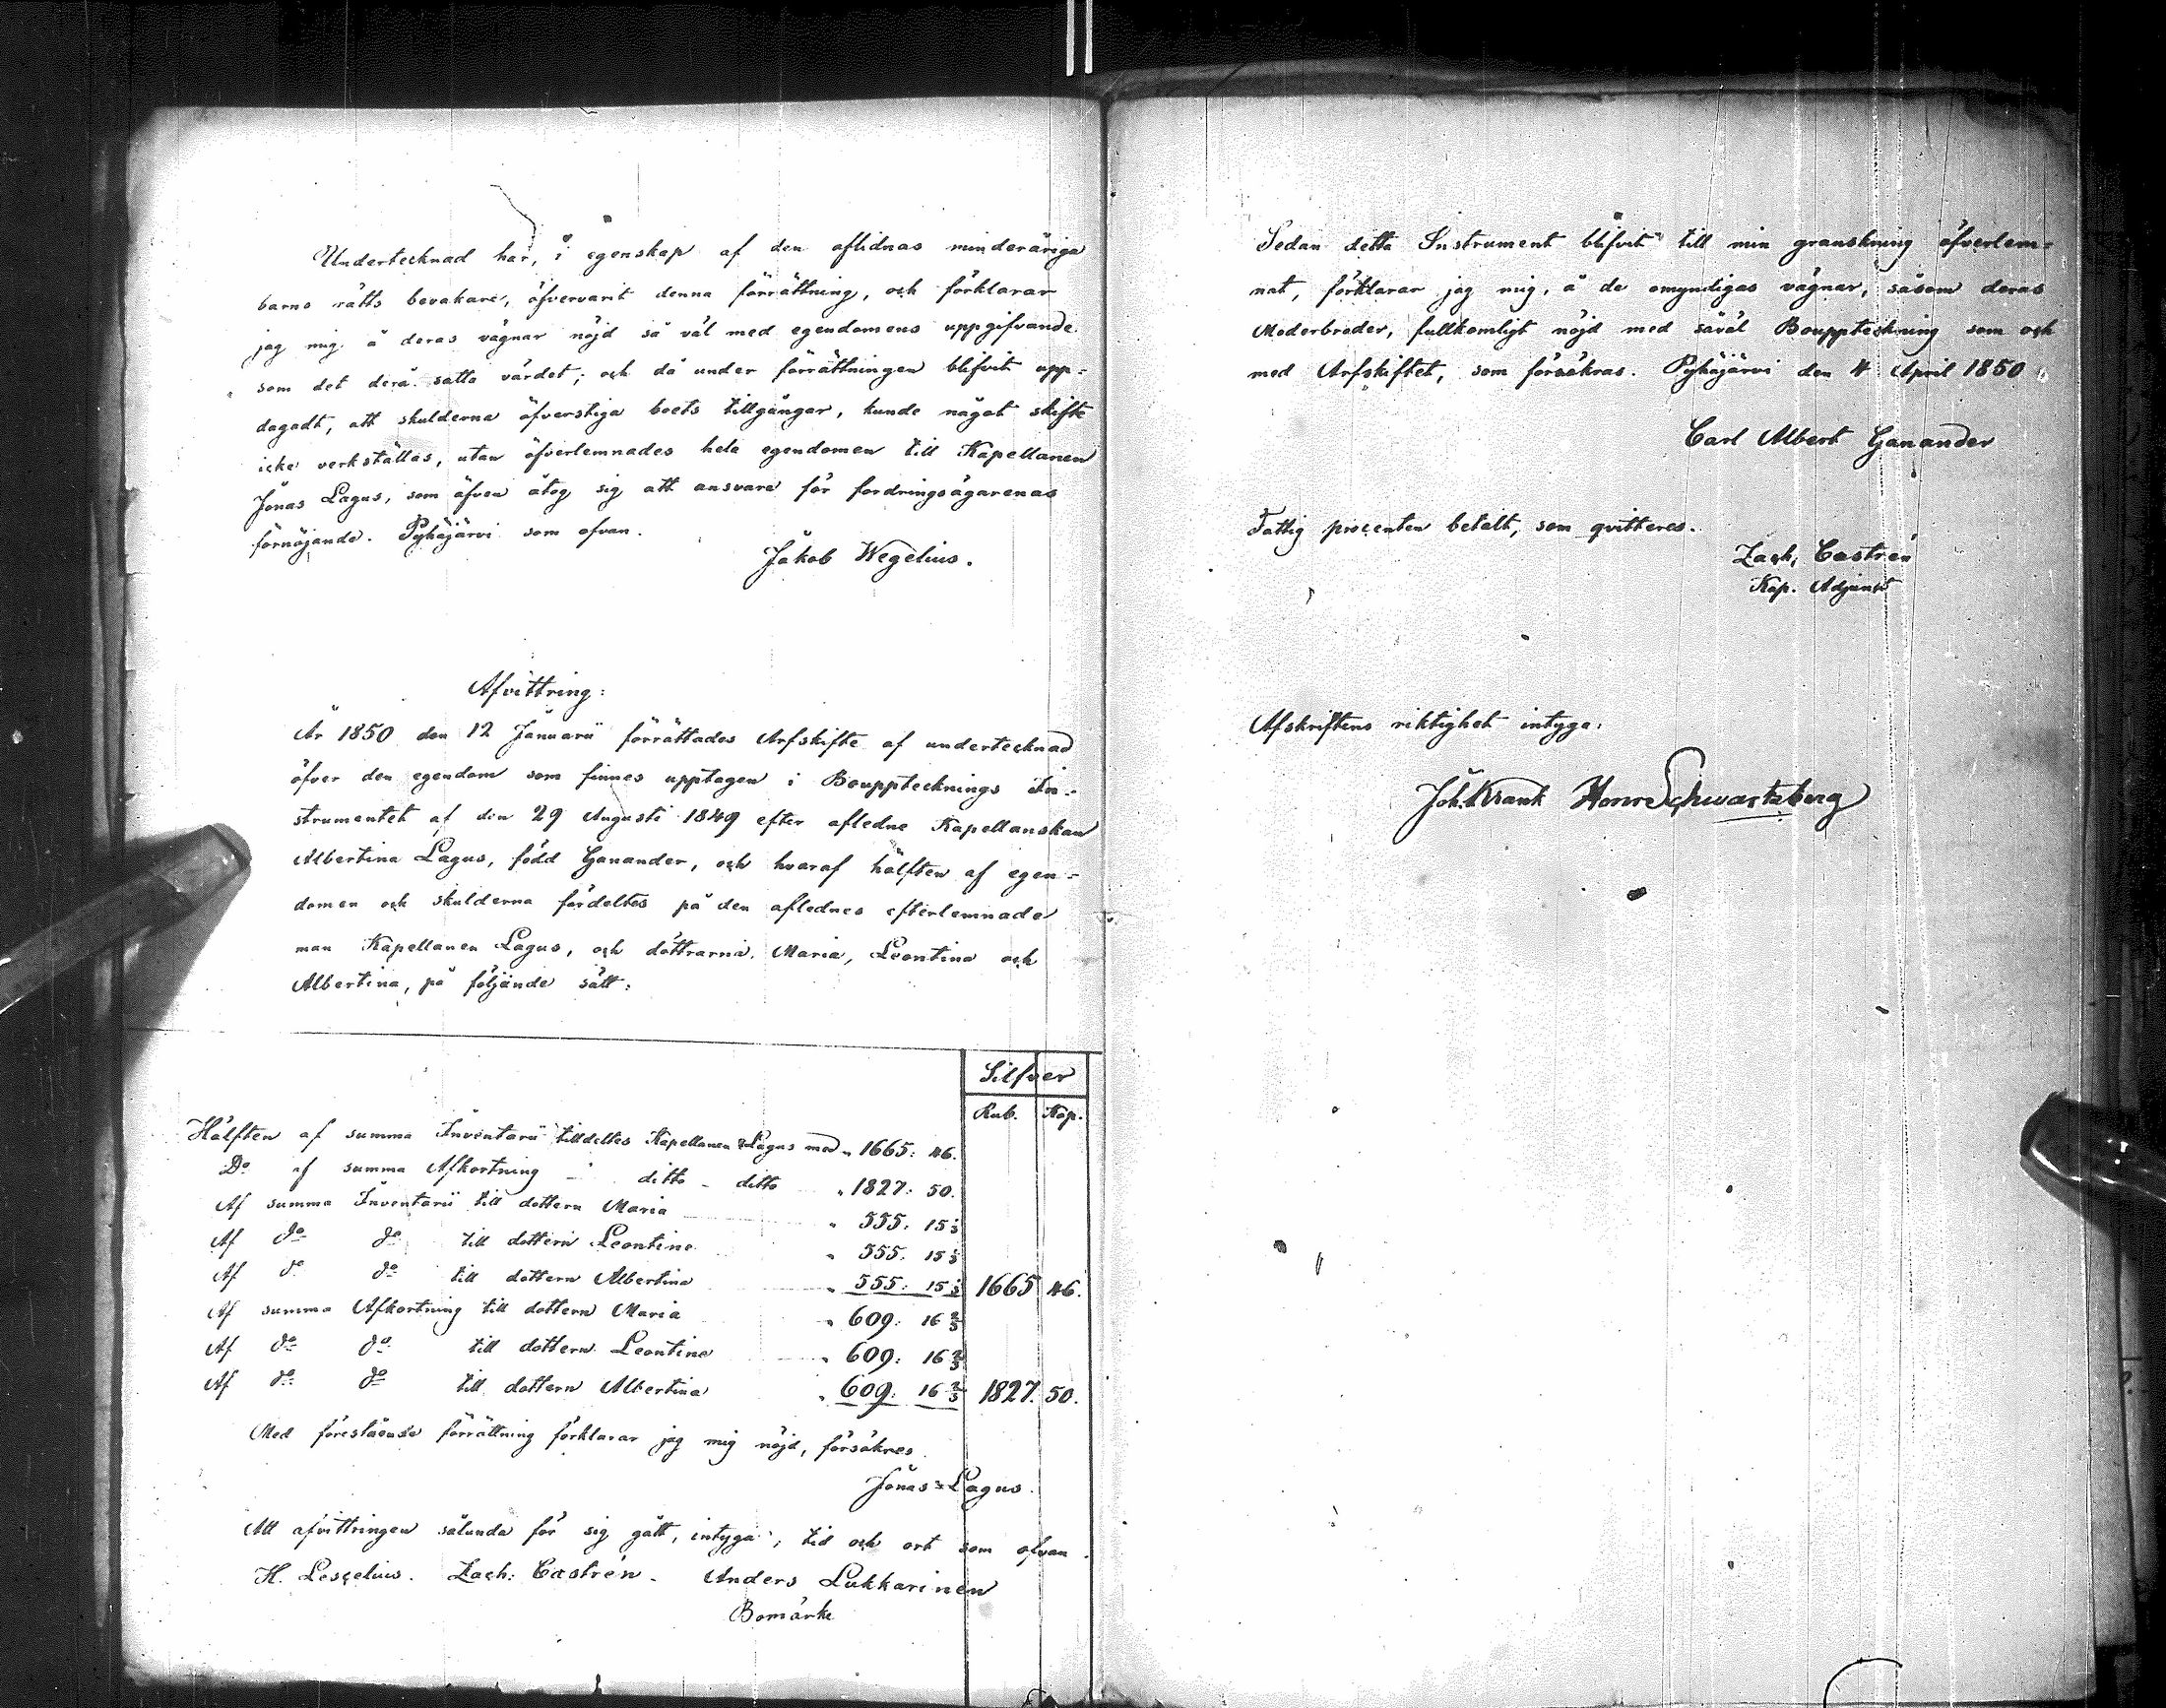 Undertecknad har, i egenskap af den aflidnas minderåriga
barns rätts bevakare, öfvervarit denna förrättning, och förklarar
jag mig å deras vägnar nöjd så väl med egendomens uppgifvande
som det derå satta värdet; och då under förrättningen blifvit upp-
dagadt, att skulderna öfverstiga boets tillgångar, kunde något skifte
icke verkställas, utan öfverlemnades hela egendomen till Kapellanen
Jonas Lagus, som äfven åtog sig att ansvara för fordringsägarenas
förnöjande. Pyhäjärvi som ofvan.
Jakob Wegelius.
Afvittring:
År 1850 den 12 Januarii förrättades Arfskifte af undertecknad
öfver den egendom som finnes upptagen i Bouppteckningsin-
strumentet af den 29 Augusti 1849 efter aflidne Kapellanskan
Albertina Lagus, född Ganander, och hvaraf hälften af egen-
domen och skulderna fördeltes på den aflednes efterlemnade
man Kapellanen Lagus, och döttrarna Maria, Leontina och
Albertina, på följande sätt:
Silfver
Rub. Kop.
Hälften af summa Inventarii tilldeltes Kapellanen Lagus med " 1665: 46.
Do af summa Afkortning - ditto - ditto " 1827: 50.
Af summa Inventarii till dottern Maria " 555: 15 1/3
Af do do till dottern Leontina " 555: 15 1/3
Af do do till dottern Albertina " 555: 15 1/3 1665 46.
Af summa Afkortning till dottern Maria " 609: 16 2/3
Af do do till dottern Leontina " 609: 16 2/3
Af do do till dottern Albertina " 609: 16 2/3 1827. 50.
Med förestående förrättning förklarar jag mig nöjd, försäkras
Jonas Lagus.
Att afvittringen sålunda för sig gått, intyga; tid och ort som ofvan.
H. Lescelius. Zach: Castrén. Anders Lukkarinen
Bomärke
Sedan detta Instrument blifvit till min granskning öfverlem-
nat, förklarar jag mig, å de omyndigas vägnar, såsom deras
Moderbroder, fullkomligt nöjd med såväl Bouppteckning som och
med Arfskiftet, som försäkras. Pyhäjärvi den 4 April 1850
Carl Albert Ganander
Fattig procenten betalt, som qvitteras.
Zach, Castrén
Kap. Adjunct
Afskriftens riktighet intyga:
Joh. Krank Schwartzberg